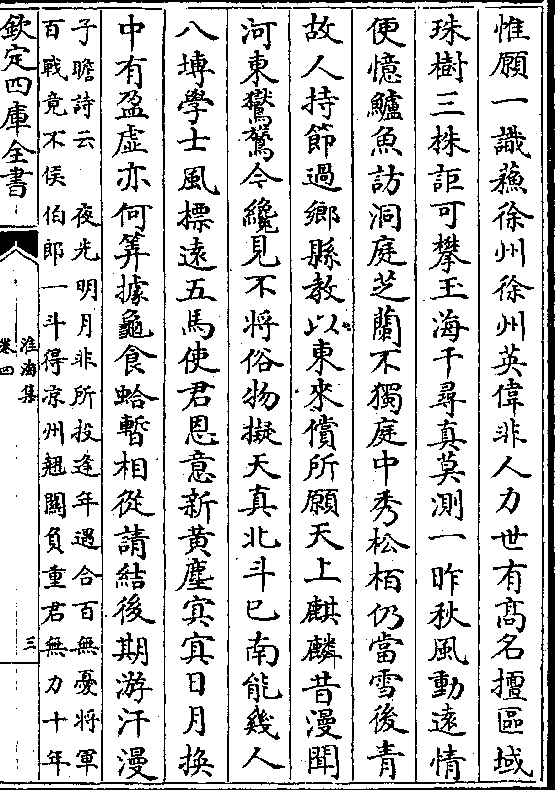 惟願一識蘓徐州徐州英偉非人力世有髙名擅區域
珠樹三株詎可攀玉海千尋真莫測一昨秋風動遠情
便憶鱸魚訪洞庭芝蘭不獨庭中秀松栢仍當雪後青
故人持節過鄉縣教以東來償所願天上麒麟昔漫聞
河東鸑鷟今纔見不將俗物擬天真北斗已南能幾人
八塼學士風標遠五馬使君恩意新黄塵㝠㝠日月換
中有盈虚亦何筭據龜食蛤暫相從請結後期游汗漫
子瞻詩云　夜光明月非所投逢年遇合百無憂將軍
百戰竟不侯伯郎一斗得凉州翹關負重君無力十年
欽定四庫全書
淮海集
卷四
三